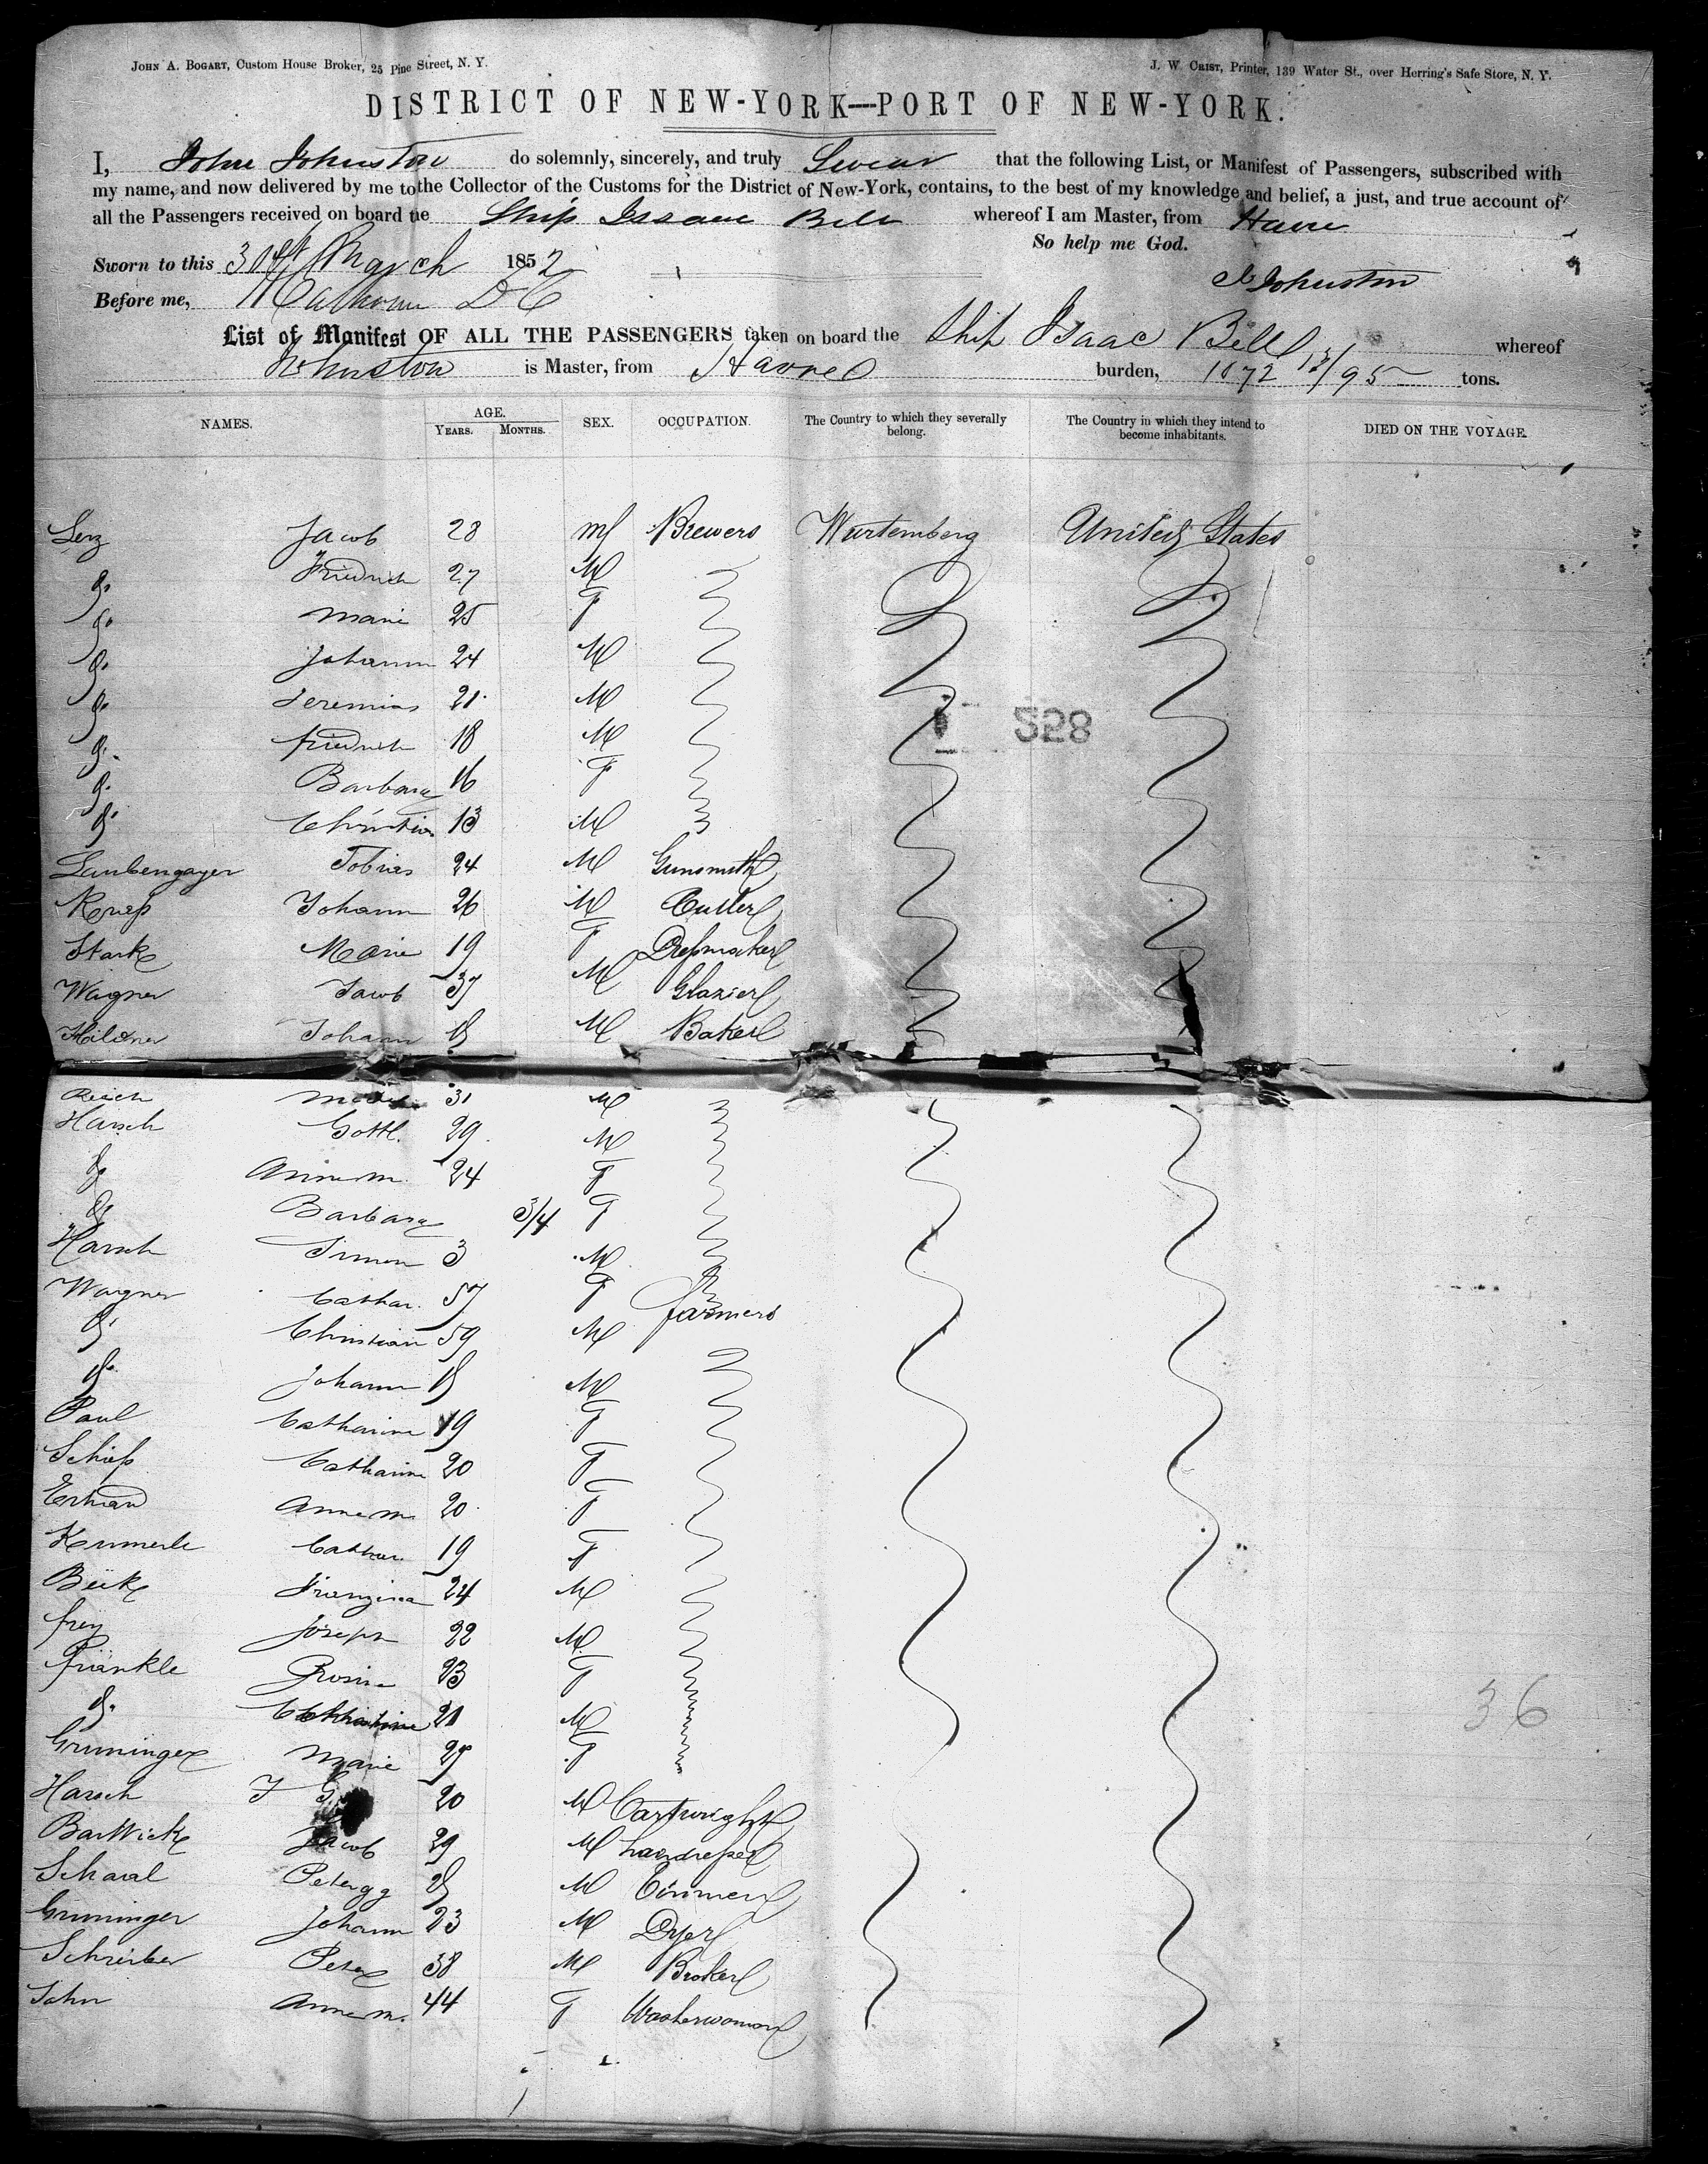 JOHN A. BOGART, Custom House Broker, 25 Pine Street, N. Y.
J. W. ORIST, Printer, 139 Water St., over Herring's Safe Store, N. Y.
DISTRICT OF NEW-YORK—PORT OF NEW-YORK.
I, John Johnston do solemnly, sincerely, and truly Swear that the following List, or Manifest of Passengers, subscribed with
my name, and now delivered by me to the Collector of the Customs for the District of New-York, contains, to the best of my knowledge and belief, a just, and true account of
all the Passengers received on board the Ship Isaac Bell whereof I am Master, from Havre
So help me God.
Sworn to this 30th March 1852
J. Johnston
Before me,
List of Manifest OF ALL THE PASSENGERS taken on board the Ship Isaac Bell whereof
Johnston is Master, from Havre burden, 1072 /95 tons.
NAMES. AGE. YEARS. MONTHS. SEX. OCCUPATION. The Country to which they severally belong. The Country in which they intend to become inhabitants. DIED ON THE VOYAGE.
Lenz Jacob 28 M Brewers Wurtemberg United States
do Friedrich 27 M
do Marie 25 F
do Johann 24 M
do Jeremias 21 M
528
do friedrich 18 M
do Barbara 16 F
do Christian 13 M
Laubengayer Tobias 24 M Gunsmith
Johann 26 M Cutler
Stark Marie 19 F Dressmaker
Wagner Jacob 37 M Glazier
Hildner Johann 18 M Baker
Reich 31 M
Harsch Gottl. 29 M
do Anne m. 24 F
do Barbara 3/4 F
Harsch Simon 3 M
Wagner Cathar. 57 F farmers
do Christian 59 M
do Johann 18 M
Paul Catharine 19 F
Schiess Catharine 20 F
Erhard Anne m. 20 F
Kummerle Cathar. 19 F
24 M
frey Joseph 22 M
fränkle Rosine 23 F
do 21 M
Gruninger Marie 25 F
Harsch J G 20 M Cartwright
Jacob 29 M
Schaal 28 M
36
Gruninger Johann 23 M Dyer
Schreiber Peter 38 M Broker
John Anne m. 44 F Washerwoman